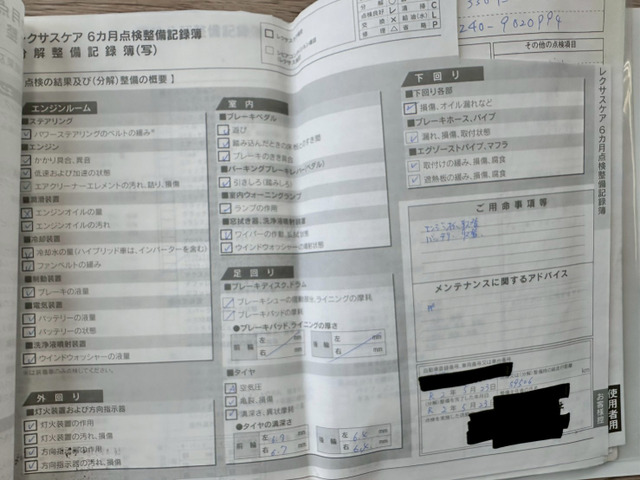 レクサスケア 6カ月点検整備記録簿
分解整備記録簿(写)
点検の結果及び(分解)整備の概要】
エンジンルーム
■ステアリング
パワーステアリングのベルトの緩み*
■エンジン
かかり具合、異音
低速および加速の状態
エアクリーナーエレメントの汚れ、詰り、損傷
■潤滑装置
エンジンオイルの量
エンジンオイルの汚れ
■冷却装置
冷却水の量(ハイブリッド車は、インバーターを含む)
ファンベルトの緩み
■制動装置
ブレーキの液量
■電気装置
バッテリーの液量
バッテリーの状態
■洗浄液噴射装置
ウインドウォッシャーの液量
外回り
■灯火装置および方向指示器
灯火装置の作用
灯火装置の汚れ、損傷
方向指示器の作用
方向指示器の汚れ、損傷
室内
■ブレーキペダル
遊び
踏み込んだときの床板とのすき間
ブレーキのきき具合
■パーキングブレーキレバー(ペダル)
引きしろ(踏みしろ)
■室内ウォーニングランプ
ランプの作用
■窓拭き器、洗浄液噴射装置
ワイパーの作用、払拭状態
ウインドウォッシャーの噴射状態
足回り
■ブレーキディスク、ドラム
ブレーキシューの摺動部分、ライニングの摩耗
ブレーキパッドの摩耗
●ブレーキパッド、ライニングの厚さ
前輪 左 mm 右 mm
後輪 左 mm 右 mm
■タイヤ
空気圧
亀裂、損傷
溝深さ、異状摩耗
●タイヤの溝深さ
前輪 左 mm 右 6.7 mm
後輪 左 mm 右 mm
下回り
■下回り各部
損傷、オイル漏れなど
■ブレーキホース、パイプ
漏れ、損傷、取付状態
■エグゾーストパイプ、マフラ
取付けの緩み、損傷、腐食
遮熱板の緩み、損傷、腐食
ご用命事項等
メンテナンスに関するアドバイス
km
R 2年 5月23日
R 2年 5月23
点検良好
交換
給油(水)
240-9020994
その他の点検項目
レクサスケア 6カ月点検整備記録簿
使用者用
お客様控